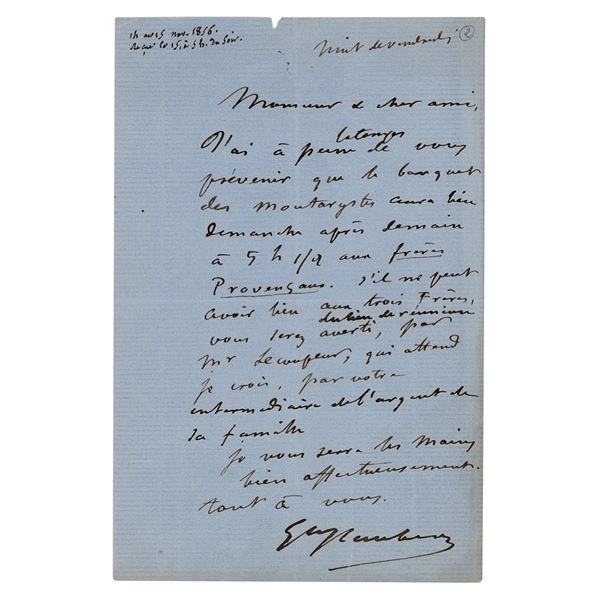 15 nov. 1856.
reçue le 15, à 5 h. du soir.
nuit de vendredi
2
Monsieur & cher ami,
le temps
J'ai à peine de vous
prévenir que le banquet
des Moutargistes aura lieu
dimanche après demain
à 5 h 1/2 aux frères
Provençaux. S'il ne peut
avoir lieu aux trois Frères,
du lieu de réunion
vous serez averti, par
Mr Lecoupeur, qui attend
je crois, par votre
intermédiaire de l'argent de
sa famille
Je vous serre les mains
bien affectueusement.
tout à vous.